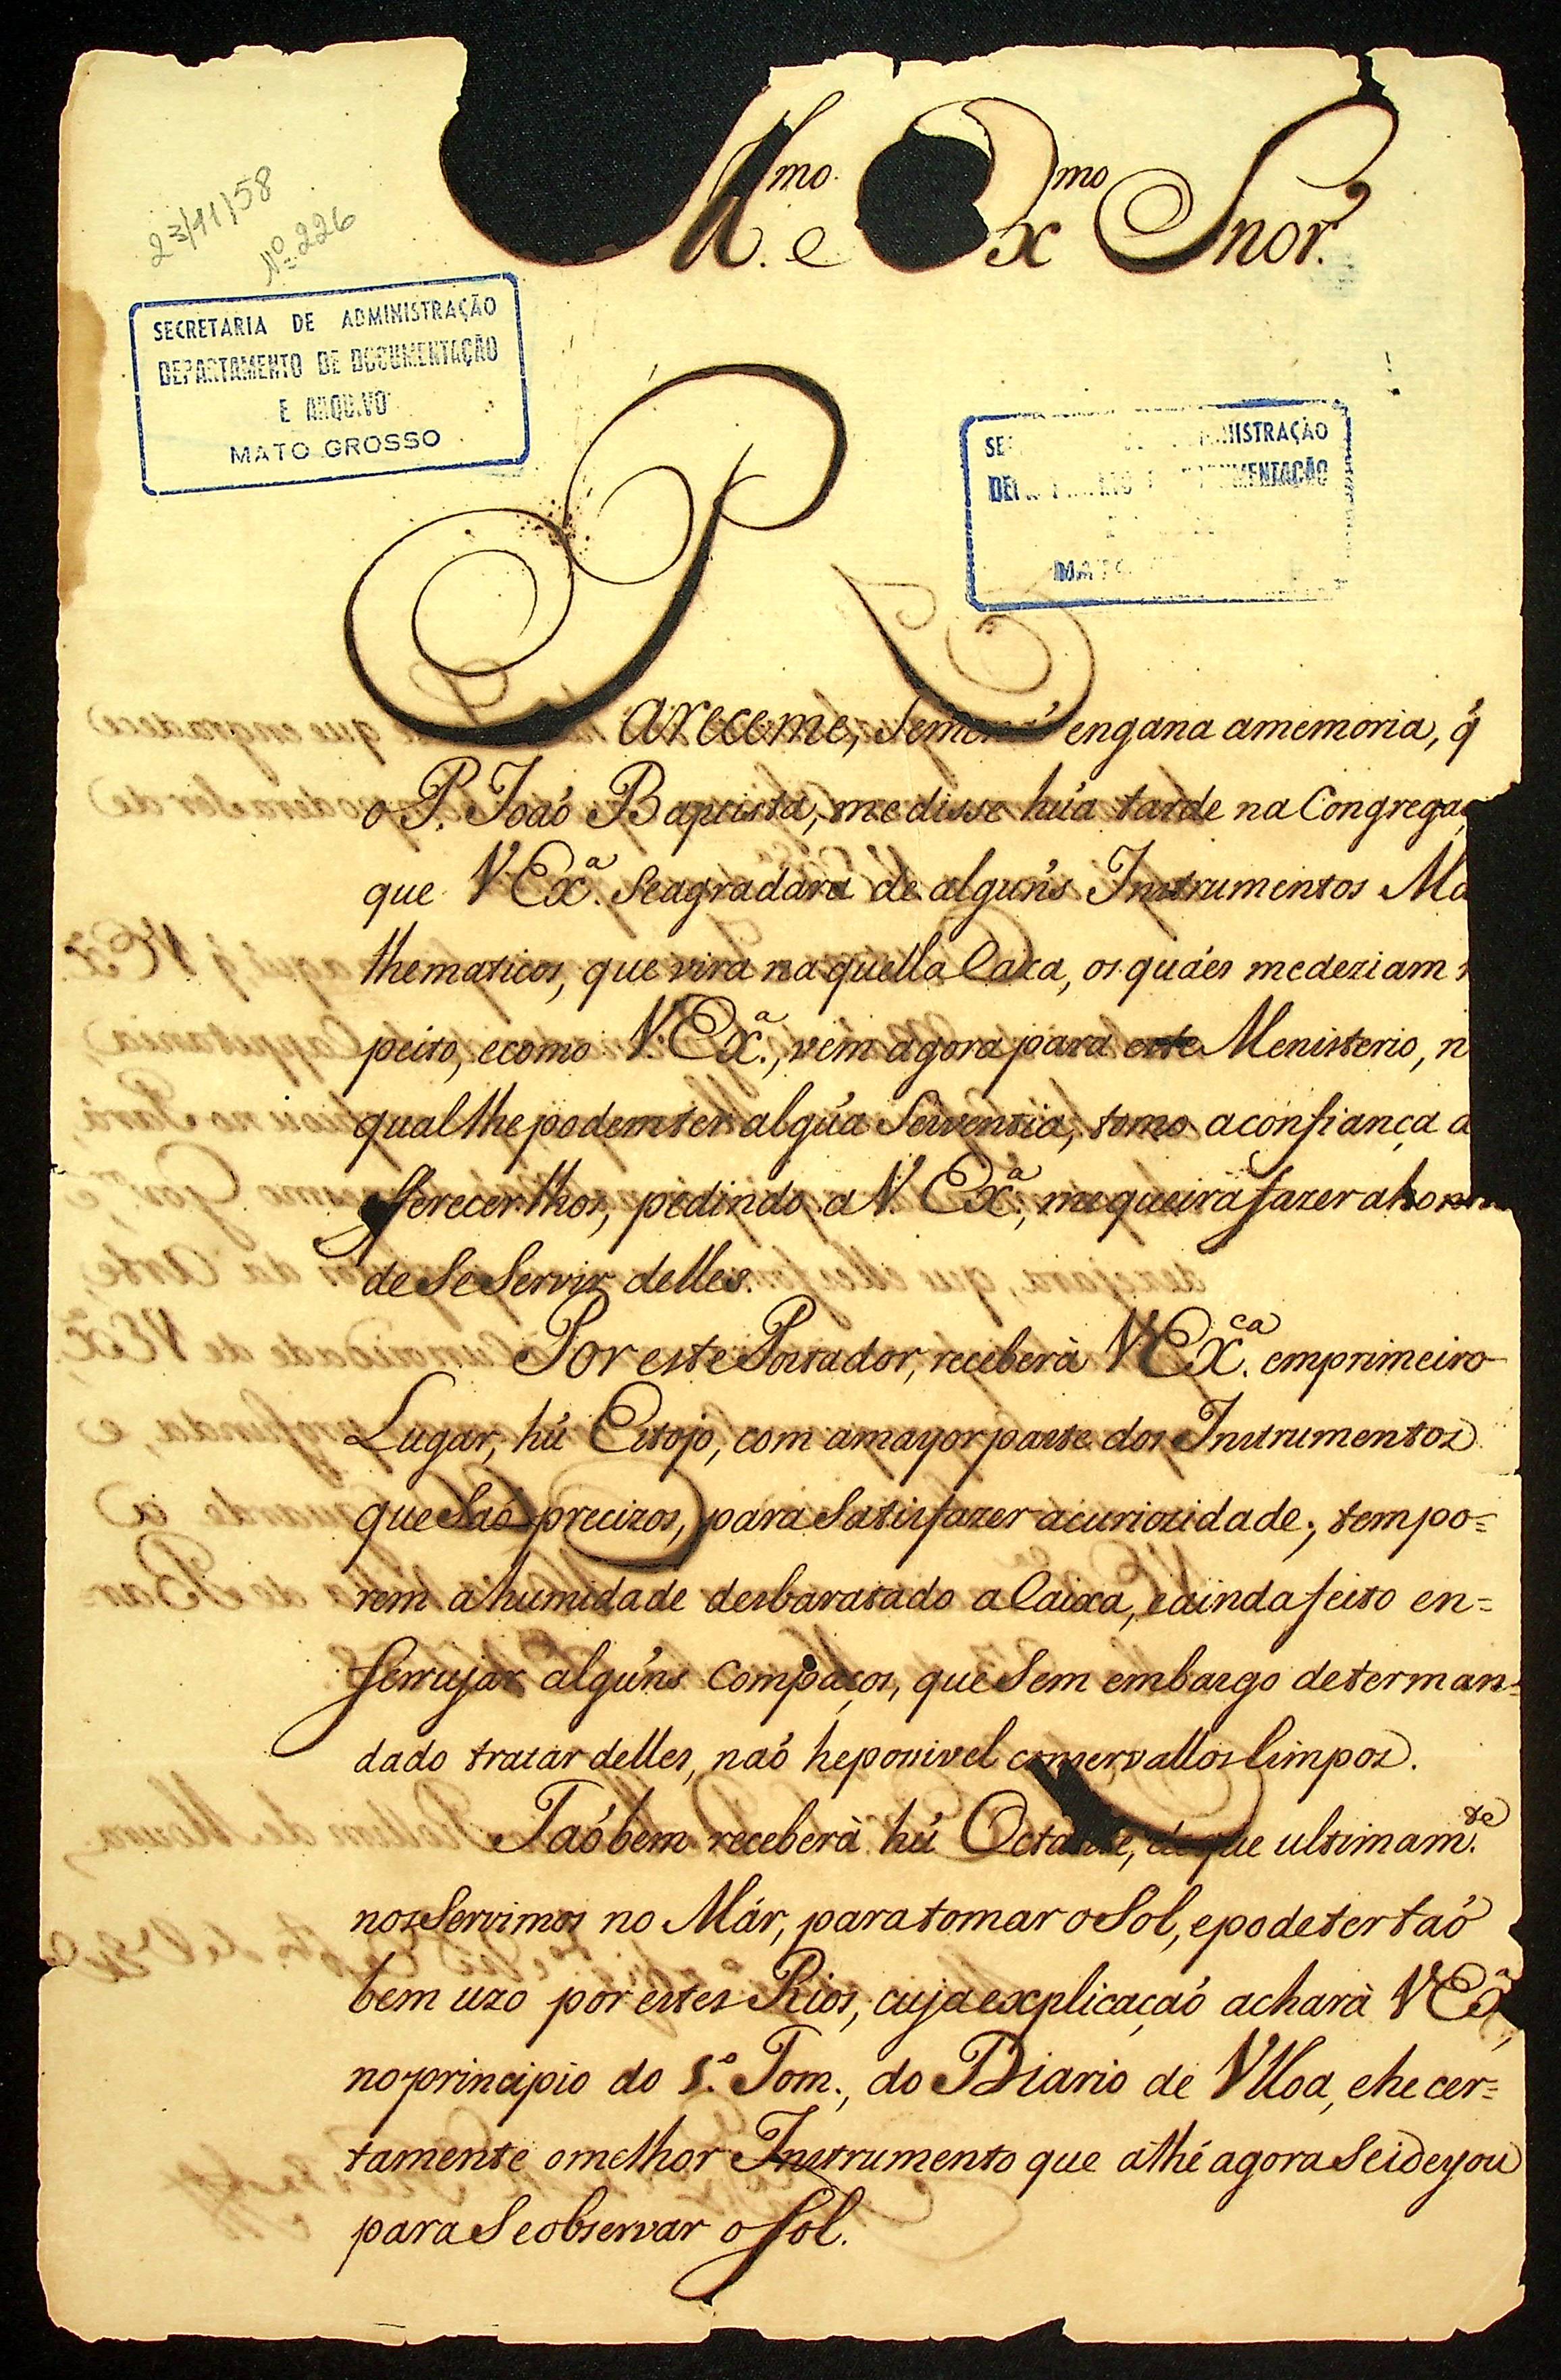 23/11/58
Nº 226
Mmo. e Exmo Snor.
SECRETARIA DE ADMINISTRAÇÃO
DEPARTAMENTO DE DOCUMENTAÇÃO
E ARQUIVO
MATO GROSSO
NISTRAÇÃO
UMENTAÇÃO
MATO
Pareceme, Seme não engana amemoria, q̃
o P. Joaõ Baptista, me disse hũa tarde na Congregaç
que V Exª. Seagradara de algũns Instrumentos Ma
thematicos, que vira naquella Caixa, os quáes mederiam
peito, ecomo V. Exª., vem agora para este Menisterio, n
qual lhe podem ter algũa Serventia, tomo aconfiança d
offerecerlhos, pedindo a V. Exª., mequeira fazer ahonra
de Se Servir delles.
Por este Portador, receberà V Exca. emprimeiro
Lugar, hũ Estojo, com amayor parte dos Instrumentos
que Saõ precizos, para Satisfazer acuriozidade; tempo=
rem ahumidade desbaratado a Caixa, eainda feito en=
ferrujar algũns Compaços, que Sem embargo determan=
dado tratar delles, naõ hepossivel conservallos limpos.
Taõbem receberà hũ Octante, deque ultimam.te
nos Servimos no Már, para tomar o Sol, epodeter taõ
bem uzo por estes Rios, cuja explicaçaõ acharà V Exª,
no principio do 1º. Tom., do Diario de Vlloa, ehe cer=
tamente omelhor Instrumento que athé agora Seideyou
para Seobservar o Sol.